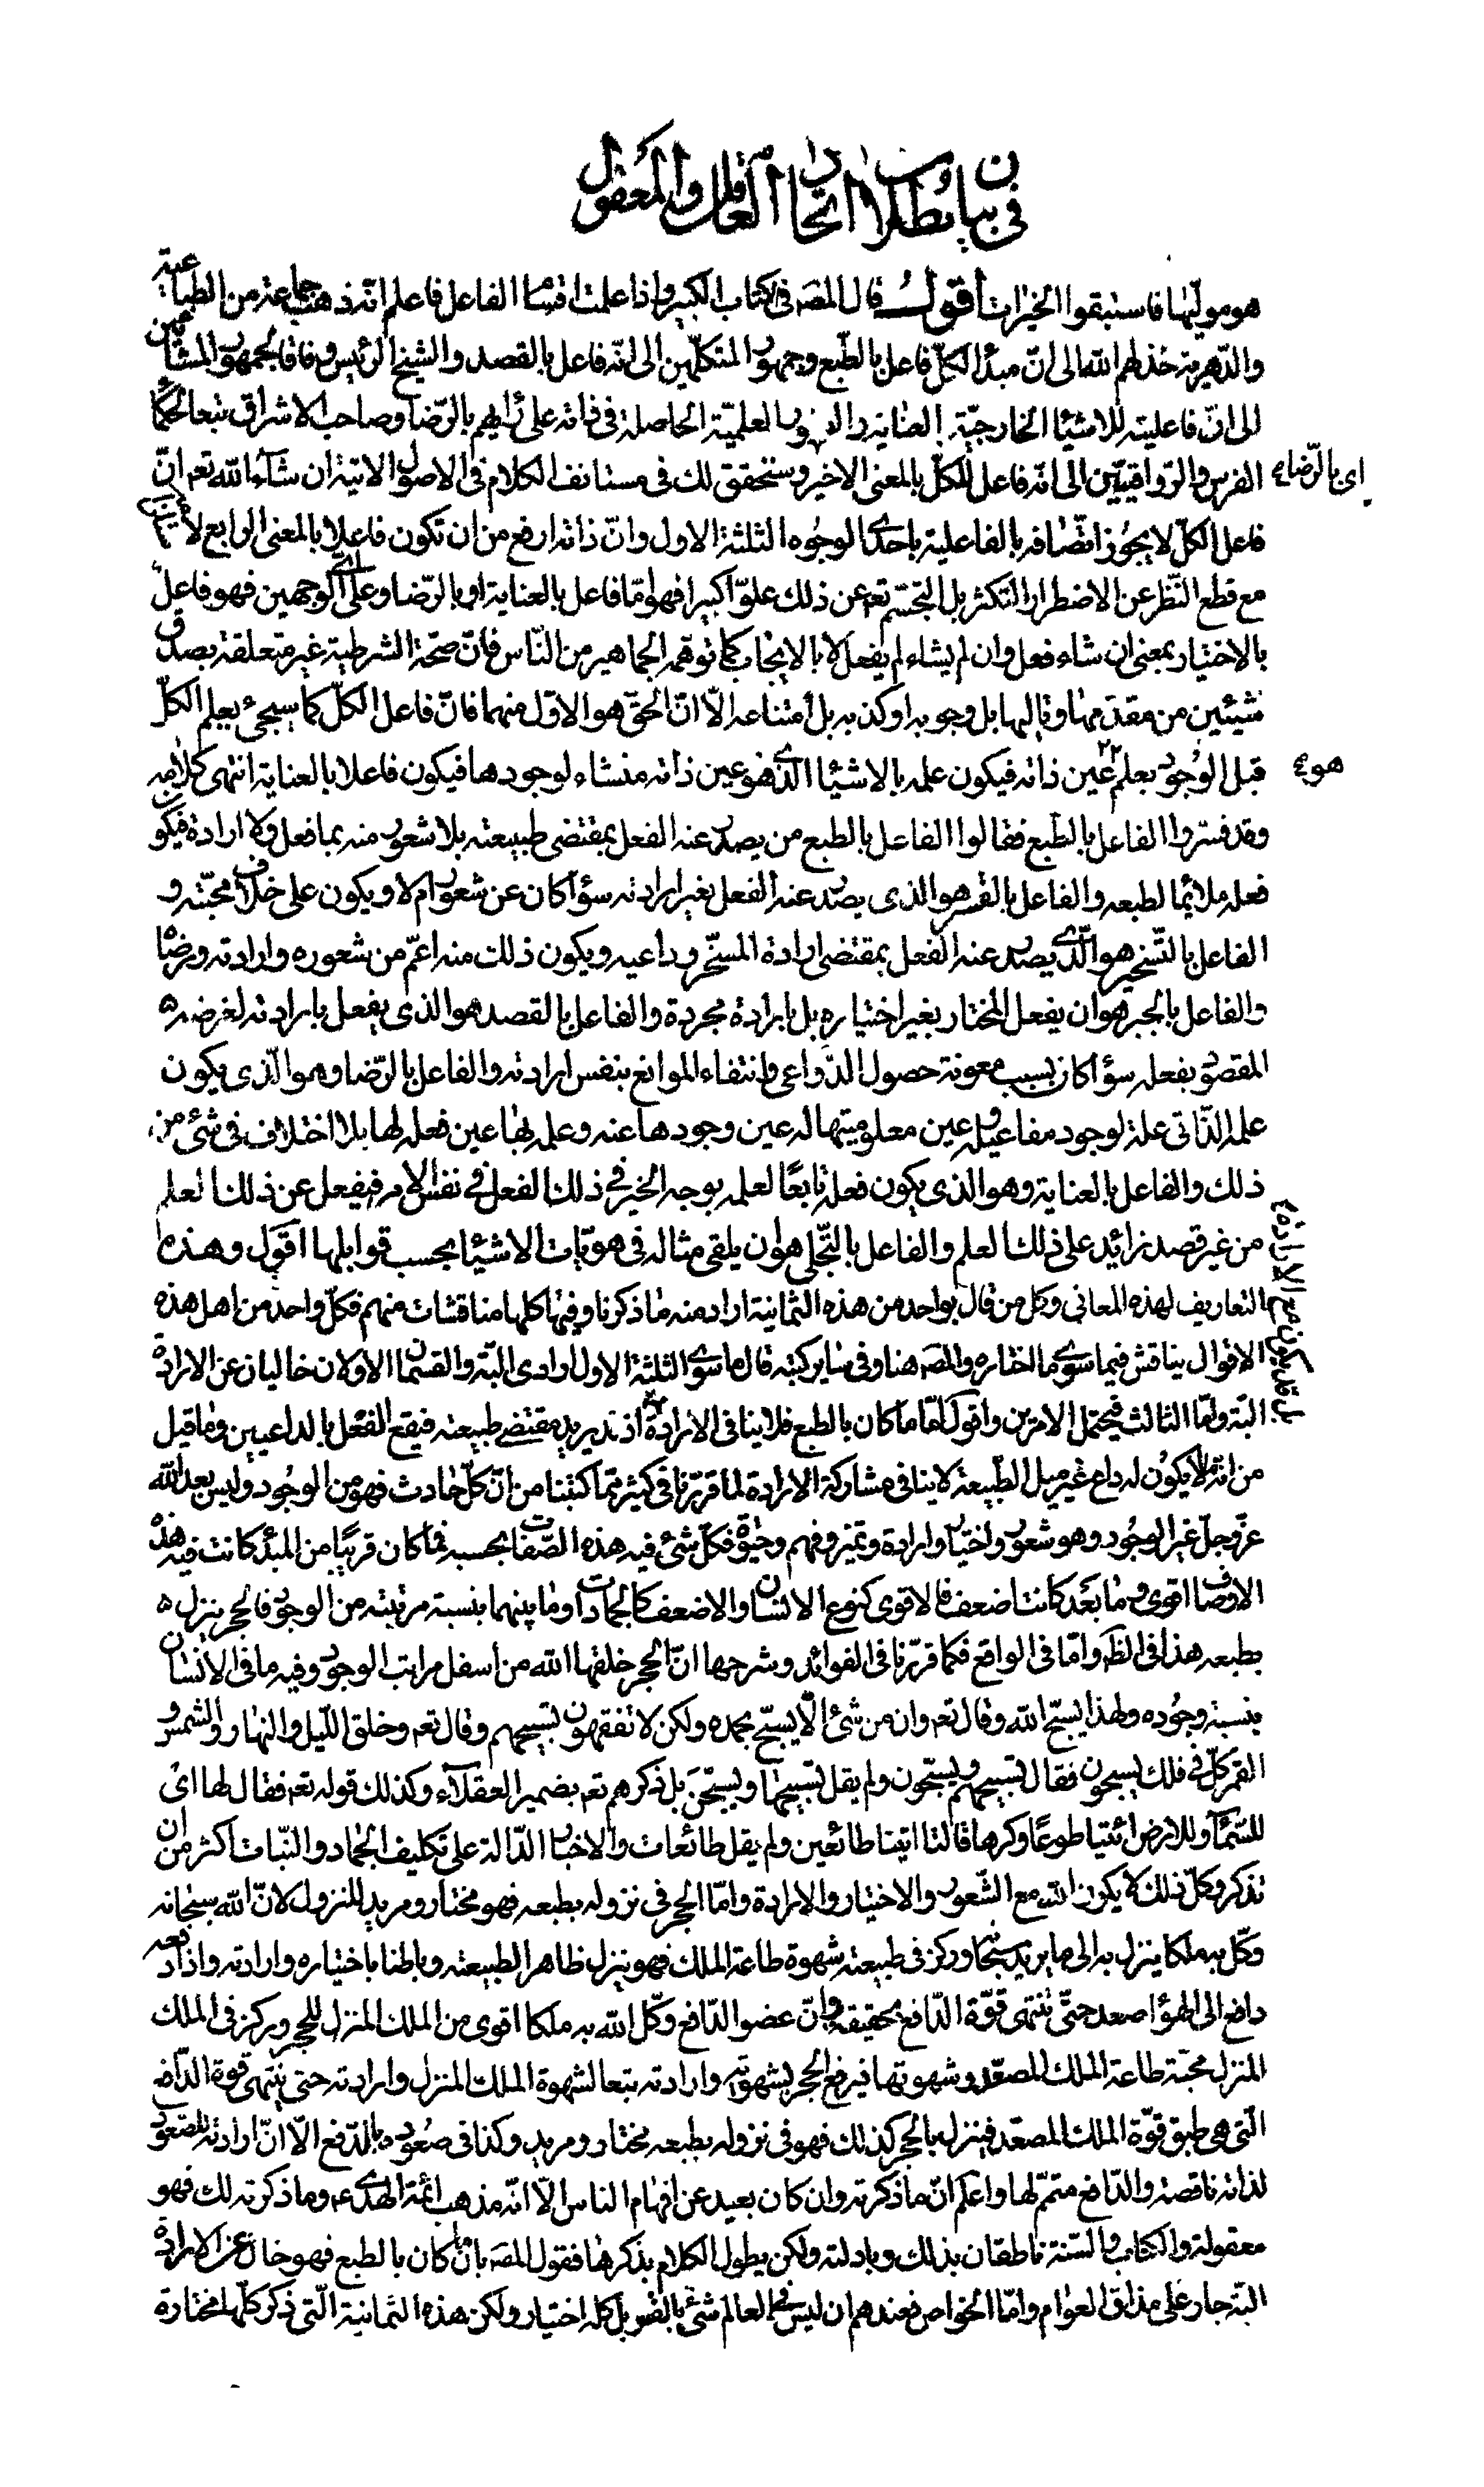 في بيان بطلان اتحاد العاقل والمعقول
هو موليها فاستبقوا الخيرات أقول قال المصه في الكتاب الكبير واذا علمت اقسام الفاعل فاعلم انّه ذهب جماعة من الطباعية
والدّهرية خذلهم الله الى انّ مبدأ الكلّ فاعل بالطّبع وجمهور المتكلّمين الى انّه فاعل بالقصد والشيخ الرئيس وفاقا لجمهور المشائين
الى انّ فاعليته للاشياء الخارجيّة بالعناية وللصور العلميّة الحاصلة في ذاته على رأيهم بالرّضا وصاحب الاشراق تبعا لحكماء
الفرس والرّواقيّين الى انّه فاعل للكلّ بالمعنى الاخير وستحقق لك في مستانف الكلام في الاصول الاتية ان شآء الله تعم انّ
اى بالرّضاء
فاعل الكلّ لا يجوز اتّصافه بالفاعلية باحدى الوجوه الثلثة الاول وانّ ذاته ارفع من ان تكون فاعلا بالمعنى الرابع لا
مع قطع النّظر عن الاضطرار التكثر بل التجسّم تعم عن ذلك علوّا كبيرا فهو امّا فاعل بالعناية او بالرّضا وعلى اىّ الوجهين فهو فاعل
بالاختيار بمعنى ان شاء فعل وان لم يشاء لم يفعل لا بالايجاب كما توهّمه الجماهير من النّاس فانّ صحّة الشرطية غير متعلقة بصدق
شيئين من مقدّمها وتاليها بل وجوبه او كذبه بل امتناعه الّا انّ الحقّ هو الاوّل منهما فانّ فاعل الكلّ كما سيجيء يعلم الكلّ
قبل الوجود بعلم عين ذاته فيكون علمه بالاشياء الذى هو عين ذاته منشاء لوجودها فيكون فاعلا بالعناية انتهى كلامه
هو
وقد فسّروا الفاعل بالطّبع فقالوا الفاعل بالطبع من يصدر عنه الفعل بمقتضى طبيعته بلا شعور منه بما فعل ولا ارادة فيكون
فعله ملائما لطبعه والفاعل بالقسر هو الذى يصدر عنه الفعل بغير ارادته سوآء كان عن شعور ام لا ويكون على خلاف محبّته و
الفاعل بالتّسخير هو الّذى يصدر عنه الفعل بمقتضى ارادة المسخّر وداعيه ويكون ذلك منه اعمّ من شعوره وارادته ورضاه
والفاعل بالجبر هو ان يفعل المختار بغير اختياره بل بارادة مجردة والفاعل بالقصد هو الذى يفعل بارادته لغرضه
المقصود بفعله سوآء كان بسبب معونة حصول الدّواعى وانتفاء الموانع بنفس ارادته والفاعل بالرّضا وهو الّذى يكون
علمه الذّاتى علة لوجود مفاعيله وعين معلوميتها له عين وجودها عنه وعلمه لها عين فعله لها بلا اختلاف في شيء من
ذلك والفاعل بالعناية وهو الذى يكون فعله تابعًا لعلمه بوجه الخير في ذلك الفعل في نفس الامر فيفعل عن ذلك العلم
من غير قصد زائد على ذلك العلم والفاعل بالتّجلى هو ان يلقى مثاله في هويّات الاشياء بحسب قوابلها اقول وهذه
التعاريف لهذه المعانى وكل من قال بواحد من هذه الثمانية اراد منه ما ذكرنا وفيها كلها مناقشات منهم فكلّ واحد من اهل هذه
الاقوال يناقش فيما سوى ما اختاره والمصه هنا وفى ساير كتبه قال ما سوى الثلثة الاول ارادى البتّة والقسمان الاولان خاليان عن الارادة
البتة وامّا الثالث فيحتمل الامرين واقول امّا ما كان بالطبع فلا ينافى الارادة اذ قد يريد مقتضى طبيعته فيقع الفعل بالداعيين وما قيل
بل قد يكون مع الارادة
من انّه لا يكون له داع غير ميل الطّبيعة لا ينافى مشاركة الارادة لما قرّرنا في كثير ممّا كتبنا من انّ كلّ حادث فهو من الوجود وليس بعد الله
عزّ وجلّ غير الوجود وهو شعور واختيار وارادة وتميز وفهم وحيوة فكلّ شيء فيه هذه الصّفات بحسبه فما كان قريبًا من المبدء كانت فيه هذه
الاوصاف اقوى وما بعد كانت اضعف فالاقوى كنوع الانسان والاضعف كالجمادات وما بينهما بنسبة مرتبته من الوجود فالحجر ينزل
بطبعه هذا في الظّه وامّا في الواقع فكما قرّرنا في الفوائد وشرحها انّ الحجر خلقها الله من اسفل مراتب الوجود وفيه ما في الانسان
بنسبة وجوده ولهذا يسبّح الله وقال تعم وان من شيء الّا يسبّح بحمده ولكن لا تفقهون تسبيحهم وقال تعم وخلق اللّيل والنهار والشمس و
القمر كلّ في فلك يسبحون فقال تسبيحهم ويسبّحون ولم يقل تسبيحها ويسبّحن بل ذكرهم تعم بضمير العقلآء وكذلك قوله تعم فقال لها اى
للسّمآء وللارض ائتيا طوعًا وكرها قالتا اتينا طائعين ولم يقل طائعات والاخبار الدّالة على تكليف الجماد والنّبات اكثر من ان
تذكر وكلّ ذلك لا يكون الّا مع الشّعور والاختيار والارادة وامّا الحجر في نزوله بطبعه فهو مختار ومريد للنزول لانّ الله سبحانه
وكّل به ملكا ينزل به الى ما يريد سبحانه وركز في طبيعته شهوة طاعة الملك فهو ينزل ظاهرا لطبيعته وباطنا باختياره وارادته واذا دفعه
دافع الى الهوآء صعد حتّى تنتهى قوّة الدّافع بحقيقة وانّ عضو الدّافع وكّل الله به ملكا اقوى من الملك المنزل للحجر وركز في الملك
المنزل محبّة طاعة الملك المصعّد وشهوتها فيرفع الحجر بشهوته وارادته تبعا لشهوة الملك المنزل وارادته حتى ينتهى قوة الدّافع
الّتى هى طبق قوّة الملك المصعّد فينزل بالحجر كذلك فهو في نزوله بطبعه مختار ومريد وكذا في صعوده بالدّفع الّا انّ ارادته للصّعود
لذاته ناقصة والدّافع متمّم لها واعلم انّ ما ذكرته وان كان بعيد عن افهام الناس الّا انّه مذهب ائمّة الهدى ع وما ذكرته لك فهو
معقولة والكتاب والسّنة ناطقان بذلك وبادلته ولكن يطول الكلام بذكرها فقول المصه بانّ ما كان بالطبع فهو خال عن الارادة
البتّة جار على مذاق العوام وامّا الخواص فعندهم ان ليس في العالم شيء بالقسر بل كله اختيار ولكن هذه الثمانية الّتى ذكر كلّها مختارة